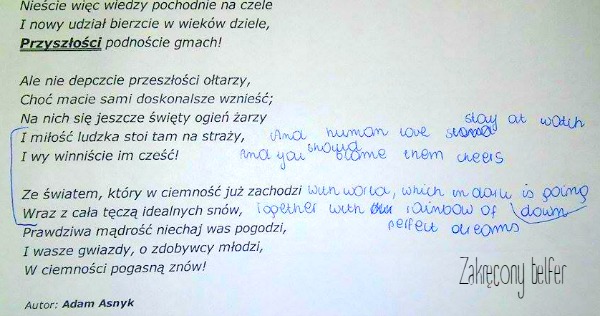 Nieście więc wiedzy pochodnie na czele
I nowy udział bierzcie w wieków dziele,
Przyszłości podnoście gmach!
Ale nie depczcie przeszłości ołtarzy,
Choć macie sami doskonalsze wznieść;
Na nich się jeszcze święty ogień żarzy
stay at watch
I miłość ludzka stoi tam na straży, And human love
I wy winniście im cześć! And you should blame them cheers
Ze światem, który w ciemność już zachodzi with world, which in dark is going
Wraz z cała tęczą idealnych snów, together with rainbow of down
Prawdziwa mądrość niechaj was pogodzi, perfect dreams
I wasze gwiazdy, o zdobywcy młodzi,
W ciemności pogasną znów!
Zakręcony belfer
Autor: Adam Asnyk